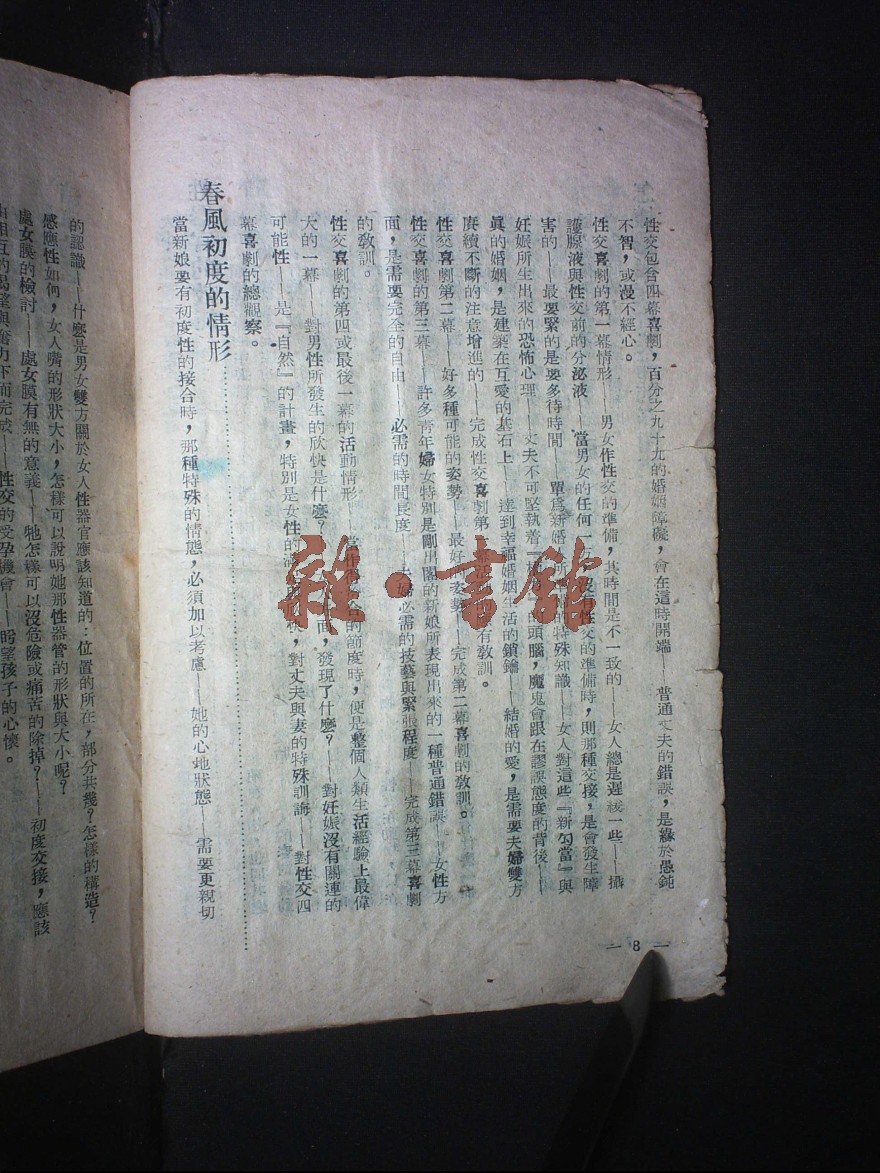 — 8 —
性交包含四幕喜劇，百分之九十九的婚姻障礙，會在這時開端——普通丈夫的錯誤，是緣於愚鈍
不智，或漫不經心。
性交喜劇的第一幕情形——男女作性交的準備，其時間是不一致的——女人總是遲緩一些——攝
護腺液與性交前的分泌液——當男女的任何一方，沒有性交的準備時，則那種交接，是會發生障
害的——最要緊的是要多待時間——單爲新婚的特殊知識——女人對這些『新勾當』與
妊娠所生出來的恐怖心理——丈夫不可堅執着的頭腦，魔鬼會跟在謬誤態度的背後——
眞的婚姻，是建築在互愛的基石上——達到幸福婚姻生活的鎖鑰——結婚的愛，是需要夫婦雙方
賡續不斷的注意增進的——完成性交喜劇第一幕有敎訓。
性交喜劇第二幕——好多種可能的姿勢——最好的姿勢——完成第二幕喜劇的敎訓。
性交喜劇的第三幕——許多青年婦女特別是剛出閣的新娘所表現出來的一種普通錯誤——女性方
面，是需要完全的自由——必需的時間長度——夫婦必需的技藝與緊張程度——完成第三幕喜劇
的敎訓。
性交喜劇的第四或最後一幕的活動情形——當合的節度時，便是整個人類生活經驗上最偉
大的一幕——對男性所發生的欣快是什麼？而，發現了什麼？——對妊娠沒有關連的
可能性——是『自然』的計畫，特別是女性的快，對丈夫與妻的特殊訓誨——對性交四
幕喜劇的總觀察。
春風初度的情形……
當新娘要有初度性的接合時，那種特殊的情態，必須加以考慮——她的心地狀態——需要更親切
的認識——什麼是男女雙方關於女人性器官應該知道的：位置的所在，部分共幾？怎樣的構造？
感應性如何，女人嘴的形狀大小，怎樣可以說明她那性器管的形狀與大小呢？
處女膜的檢討——處女膜有無的意義——牠怎樣可以沒危險或痛苦的除掉？——初度交接，應該
由相互的調整與奮力下而完成——性交的受孕機會——盼望孩子的心懷。
雜·書館